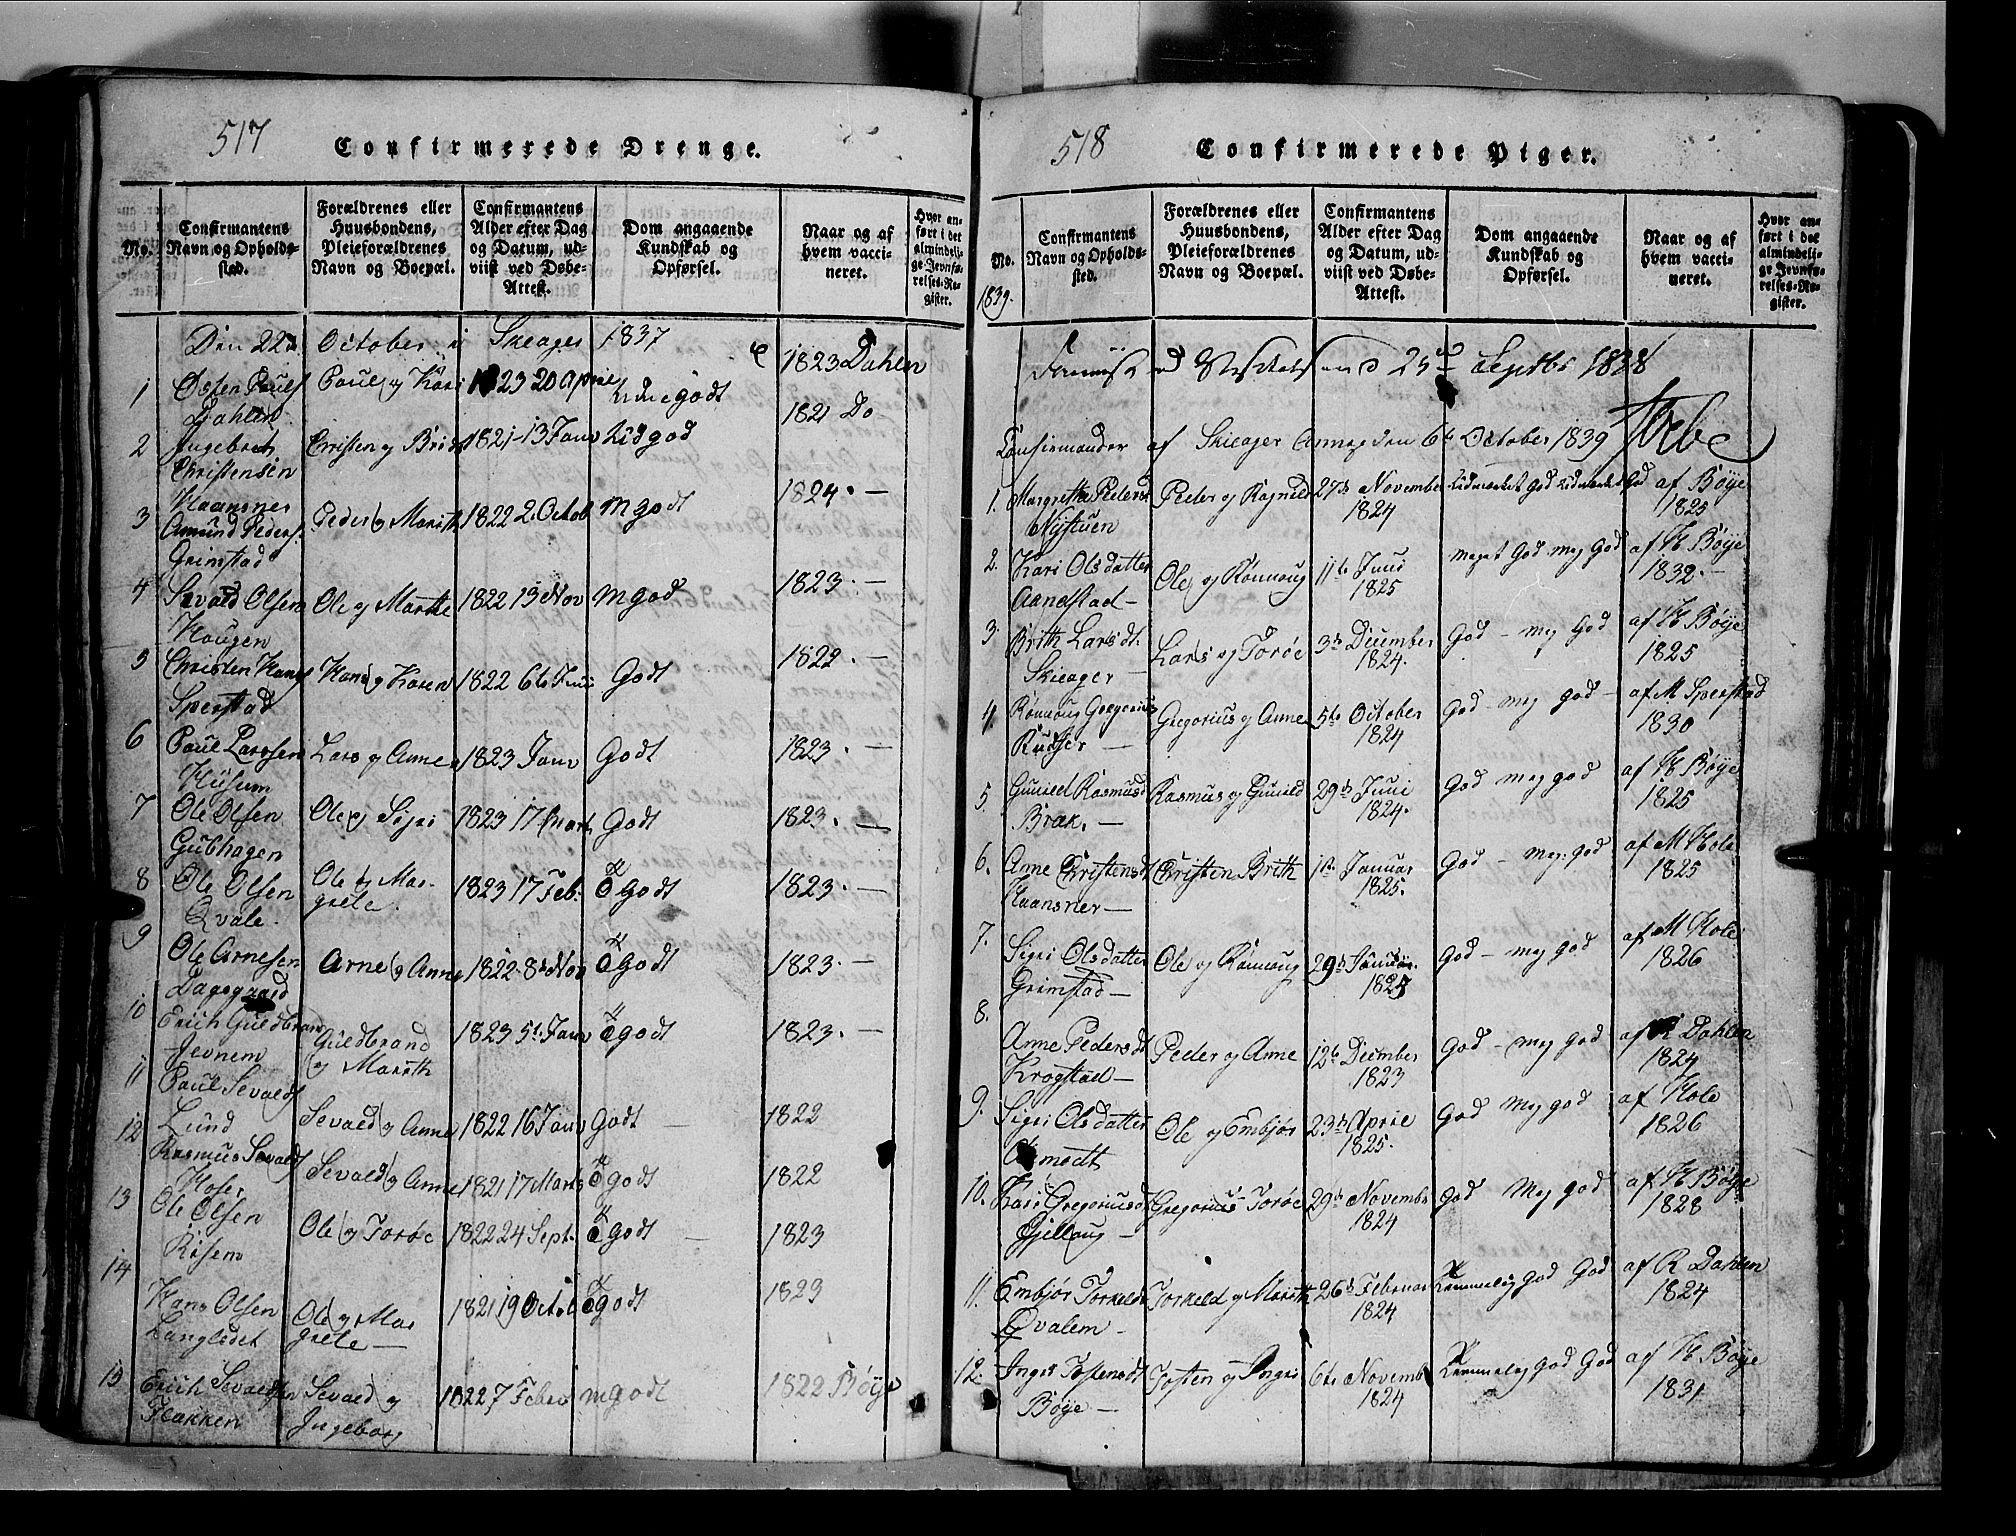 517
Confirmerede Drenge.
No.
Confirmantens Navn og Opholds-sted.
Forældrenes eller Huusbondens, Pleieforældrenes Navn og Boepæl.
Confirmantens Alder efter Dag og Datum, ud-viist ved Døbe-Attest.
Dom angaaende Kundskab og Opførsel.
Naar og af hvem vacci-neret.
Hvor an-ført i det almindeli-ge Jevnfø-relses-Re-gister.
Den 22 October i Skeager 1837
1 Østen Pauls Dahlen Paul og Kari 1823 20 April godt 1823 Dahlen
2 Ingebret Christensen Haansner Christen og Brith 1821-13 Janv Lidgod 1821 Do
3 Amund Peders. Grimstad Peder og Marith 1822 2. Octob m godt 1824. —
4 Sevald Olsen Haugen Ole og Marthe 1822 13 Nov m god 1823. —
5 Christen Hans Sperstad Hans og Karen 1822 6te Juni Godt 1822. —
6 Paul Larssen Husum Lars og Anne 1823 Janv Godt 1823. —
7 Ole Olsen Gubhagen Ole og Sigri 1823 17 Mart Godt 1823. —
8 Ole Olsen Qvale. Ole og Mar-grete. 1823 17 Feb. Godt 1823. —
9 Ole Arnesen Dagsgaard Arne og Anne 1822. 8 Nov Godt 1823. —
10 Erich Guldbran Jevnem Guldbrand og Marith 1823 5t. Janv godt 1823. —
11 Paul Sevalds Lund Sevald og Anne 1822 16 Janv Godt 1822
12 Rasmus Sevalds Moser Sevald og Anne 1821 17 Marts Godt 1822
13 Ole Olsen Risem Ole og Toröe 1822 24 Sept. Godt — 1823
14 Hans Olsen Langledet Ole og Mar grete — 1821 19 Octob Godt 1823
15 Erich Sevaldsen Flakken Sevald og Ingeborg 1822 7 Febr m godt 1822 Bøye
518
Confirmerede Piger.
No.
Confirmantens Navn og Opholds-sted.
Forældrenes eller Huusbondens, Pleieforældrenes Navn og Boepæl.
Confirmantens Alder efter Dag og Datum, ud-viist ved Døbe-Attest.
Dom angaaende Kundskab og Opførsel.
Naar og af hvem vacci-neret.
Hvor an-ført i det almindeli-ge Jevnfø-relses-Re-gister.
1839.
25 Septbr 1838
Confirmander af Skieager Annex den 6te October 1839
1. Margrethe Pedersd Nystuen Peder og Ragnild 27de November 1824 Udmærket God Udmærket God af Bøye 1825
2. Kari Olsdatter Aandstad — Ole og Rønnoug 11te Juni 1825 Meget God meg God af H Bøye 1832. —
3. Brith Larsdt. Skieager — Lars og Toröe 3de December 1824. God — meg God af H Bøye 1825
4. Rønnoug Gregorius Rudser — Gregorius og Anne 5te October 1824 God — meg god — af M Sperstad 1830
5. Gunild Rasmusd Bræk. — Rasmus og Gunild 29de Juni 1824. God meg god af H Bøye 1825
6. Anne Christensdt Haansner — Christen Brith 1te Januar 1825. God — meg. god af M Hole 1825
7. Sigri Olsdatter Grimstad — Ole og Rønnoug 29de Januar. 1825 God — meg god af M Hole 1826
8. Anne Pedersdt Krogstad — Peder og Anne 12te December 1823 God — meg god af R Dahlen 1824
9. Sigri Olsdatter Aamodt Ole og Embjør 23de April 1825. God meg god af Hole 1826
10. Kari Gregoriusd Gjellaug — Gregorius Toröe 29de Novembr 1824 God Meg god af H Bøye 1828
11. Embjør Torkelds Qvalem — Torkeld og Marith 26de Februar 1824 Temmelig God God af R Dahlen 1824
12. Ingri Tostensdt Bøye — Tosten og Ingri 6te Novemb 1824 Temmelig God God af H Bøye 1831